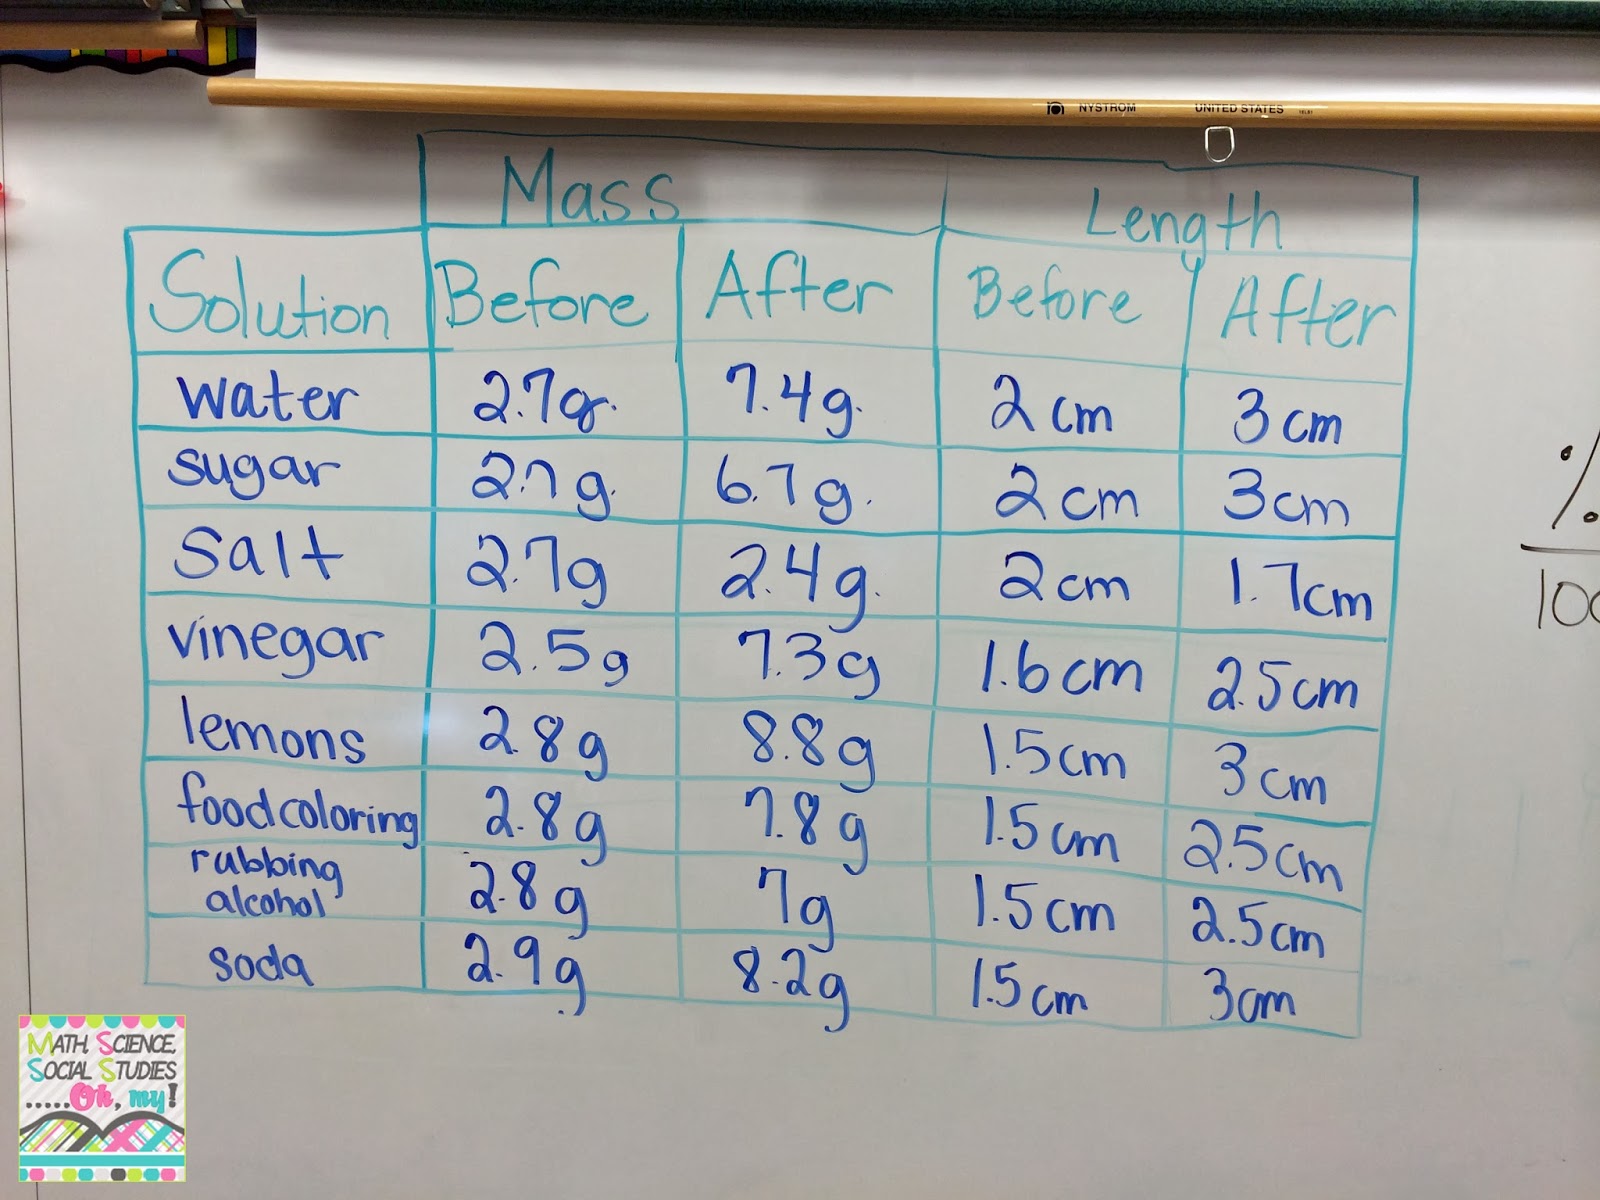 NYSTROM UNITED STATES
Mass Length
Solution Before After Before After
water 2.7g. 7.4g. 2cm 3cm
sugar 2.7g. 6.7g. 2cm 3cm
Salt 2.7g 2.4g. 2cm 1.7cm
vinegar 2.5g 7.3g 1.6cm 2.5cm
lemons 2.8g 8.8g 1.5cm 3cm
food coloring 2.8g 7.8g 1.5cm 2.5cm
rubbing
alcohol 2.8g 7g 1.5cm 2.5cm
soda 2.9g 8.2g 1.5cm 3cm
%
MATH, SCIENCE,
SOCIAL STUDIES
.....Oh, my!